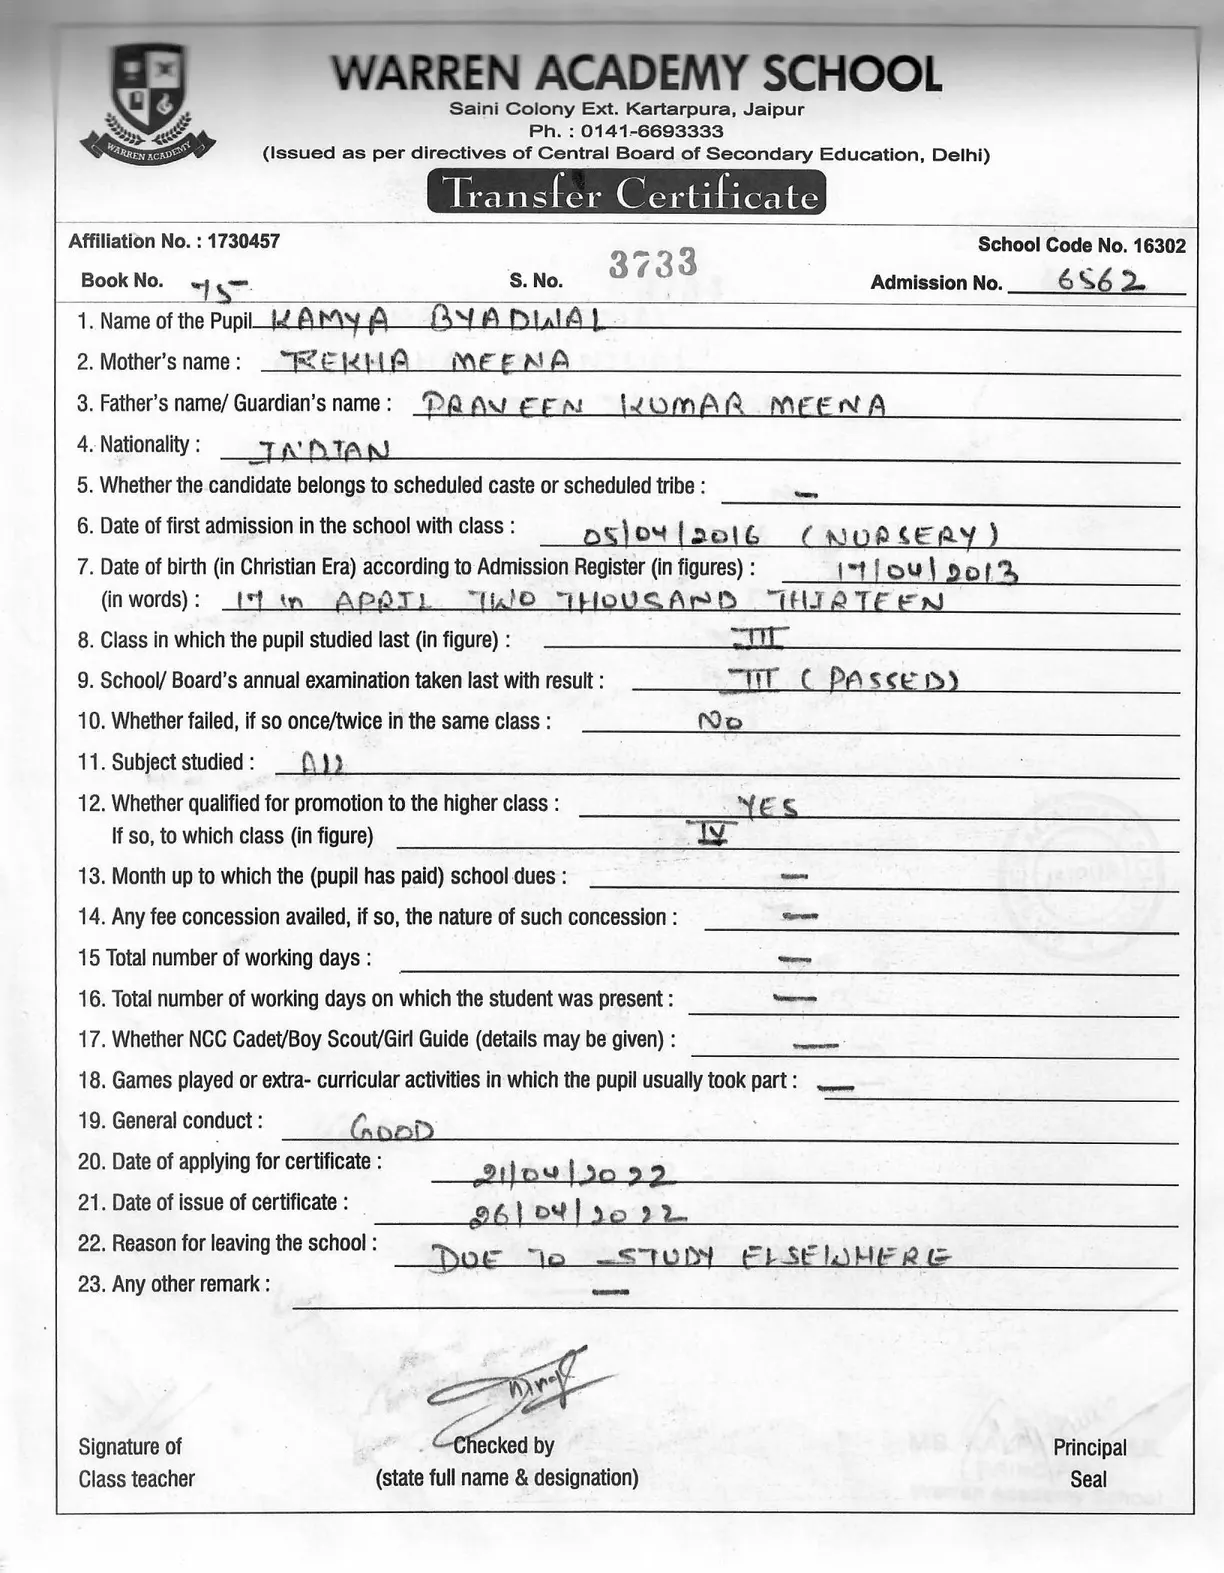 WARREN ACADEMY SCHOOL
Saini Colony Ext. Kartarpura, Jaipur
Ph. : 0141-6693333
(Issued as per directives of Central Board of Secondary Education, Delhi)
WARREN ACADEMY
Transfer Certificate
Affiliation No. : 1730457 School Code No. 16302
Book No. 75 S. No. 3733 Admission No. 6562
1. Name of the Pupil KAMYA BYADWAL
2. Mother's name : REKHA MEENA
3. Father's name/ Guardian's name : PRAVEEN KUMAR MEENA
4. Nationality : INDIAN
5. Whether the candidate belongs to scheduled caste or scheduled tribe : -
6. Date of first admission in the school with class : 05/04/2016 (NURSERY)
7. Date of birth (in Christian Era) according to Admission Register (in figures) : 17/04/2013
(in words) : 17 in APRIL TWO THOUSAND THIRTEEN
8. Class in which the pupil studied last (in figure) : III
9. School/ Board's annual examination taken last with result : III (PASSED)
10. Whether failed, if so once/twice in the same class : No
11. Subject studied : All
12. Whether qualified for promotion to the higher class : YES
If so, to which class (in figure) IV
13. Month up to which the (pupil has paid) school dues : -
14. Any fee concession availed, if so, the nature of such concession : -
15 Total number of working days : -
16. Total number of working days on which the student was present : -
17. Whether NCC Cadet/Boy Scout/Girl Guide (details may be given) : -
18. Games played or extra- curricular activities in which the pupil usually took part : -
19. General conduct : GOOD
20. Date of applying for certificate : 21/04/2022
21. Date of issue of certificate : 26/04/2022
22. Reason for leaving the school : DUE TO STUDY ELSEWHERE
23. Any other remark : -
Signature of Checked by Principal
Class teacher (state full name & designation) Seal